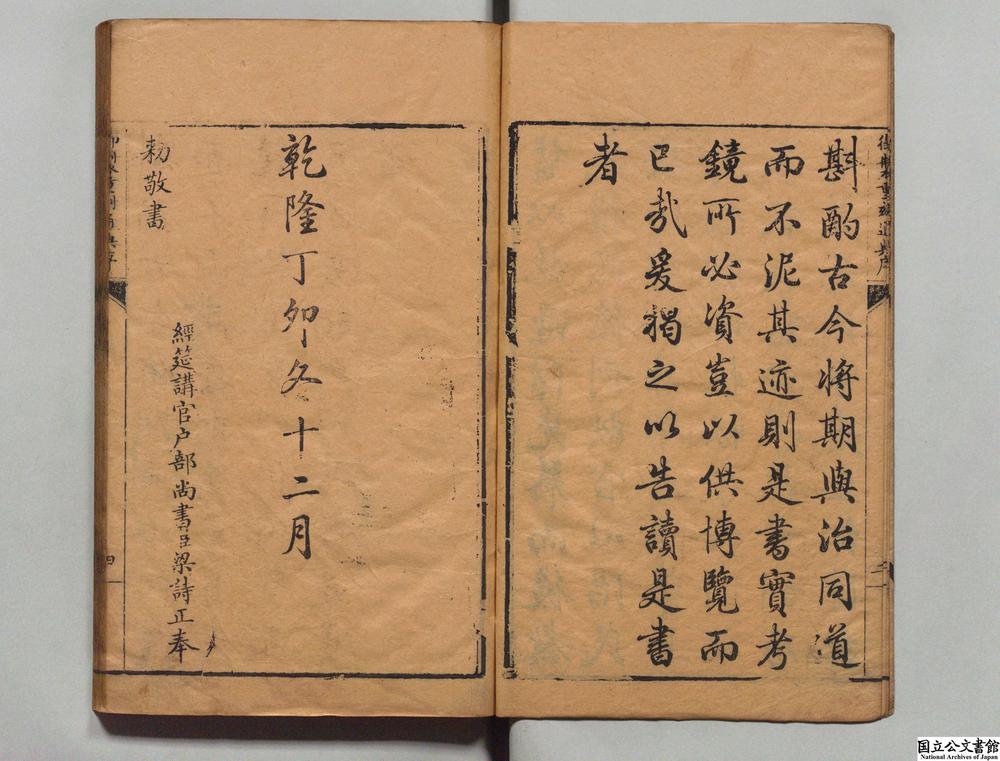 斟酌古今將期與治同道
而不泥其迹則是書實考
鏡所必資豈以供博覽而
已哉爰揭之以告讀是書
者
乾隆丁卯冬十二月
經筵講官户部尚書臣梁詩正奉
勑敬書
四
国立公文書館
National Archives of Japan